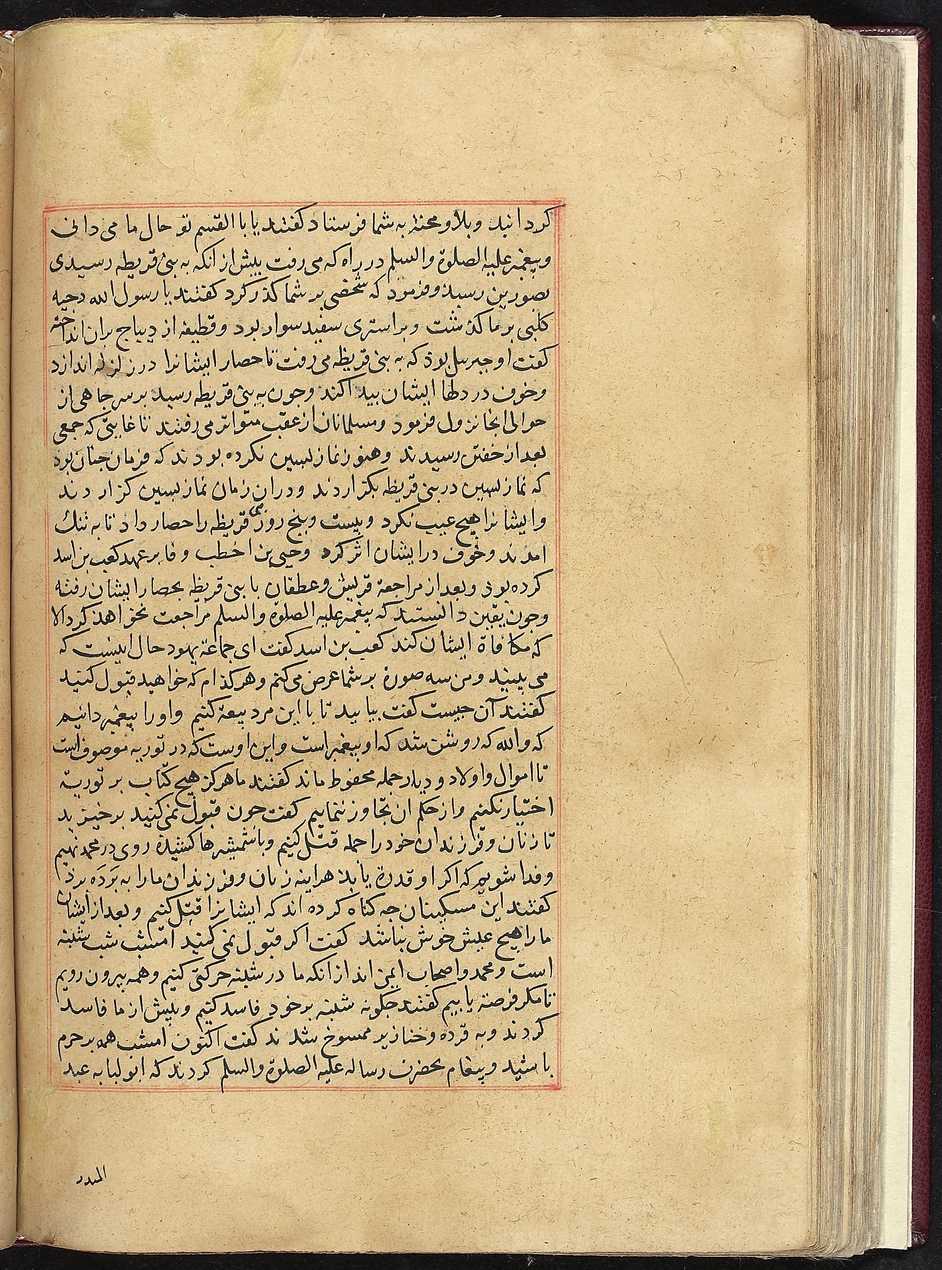 کردانید وبلا و محنة به شما فرستاد کفتند یا با القسم تو حال ما می دانی
و پیغمبر علیه الصلوة والسلم در راه که می رفت بیش از انکه به بنی قریظه رسیدی
بصورین رسید و فرمود که شخصی بر شما کذر کرد کفتند یا رسول الله دحیه
کلبی بر ما کذشت و بر استری سفید سوار بود و قطیفه از دیباج بران انداخته
کفت او جبریل بود که به بنی قریظه می رفت تا حصار ایشانرا در زلزله اندازد
وخوف در دلها ایشان بیدا کند وجون به بنی قریظه رسید بر سر جاهی از
حوالی انجا نزول فرمود ومسلمانان از عقب متواتر می رفتند تا غایتی که جمعی
بعد از خفتن رسیدند وهنوز نماز بسین نکرده بودند که فرمان جنان بود
که نماز بسین در بنی قریظه بکزارند و دران زمان نماز بسین کزاردند
وایشانرا هیج عیب نکرد و بیست وبنج روز بنی قریظه را حصار داد تا به تنک
امدند وخوف در ایشان اثر کرد وحیی بن اخطب وفا بر عهد کعب بن اسد
کرده بود وبعد از مراجعة قریش وغطفان با بنی قریظه بحصار ایشان رفته
وجون یقین دانستند که پیغمبر علیه الصلوة والسلم مراجعت نخواهد کرد الا
که مکافاة ایشان کند کعب بن اسد کفت ای جماعة یهود حال اینست که
می بینید ومن سه صورة بر شما عرض می کنم وهر کدام که خواهید قبول کنید
کفتند آن جیست کفت بیایید تا با این مرد بیعة کنیم واورا پیغمبر دانیم
که والله که روشن شد که او بیغمبر است واین اوست که در توریه موصوف است
تا اموال واولاد ودیار جمله محفوظ ماند کفتند ما هرکز هیج کتاب بر توریة
اختیار نکنیم واز حکم ان تجاوز ننماییم کفت جون قبول نمی کنید برخیزید
تا زنان وفرزندان خود را جمله قتل کنیم وباشمشیرها کشیده روی در محمد نهیم
وفدا شویم که اکر او قدرة یابد هراینه زنان وفرزندان ما را به برده برد
کفتند این مسکینان جه کناه کرده اند که ایشانرا قتل کنیم وبعد از ایشان
ما را هیج عیش خوش نباشد کفت اکر قبول نمی کنید امشب شب شنبه
است ومحمد واصحاب ایمن اند از انکه ما در شنبه حرکتی کنیم وهمه بیرون رویم
تا مکر فرصة یابیم کفتند جکونه شنبه بر خود فاسد کنیم وبیش از ما فاسد
کردند وبه قرده وخنازیر ممسوخ شدند کفت اکنون امشب همه بر حزم
باشید وپیغام بحضرت رساله علیه الصلوة والسلم کردند که ابو لبابه عبد
المنذر